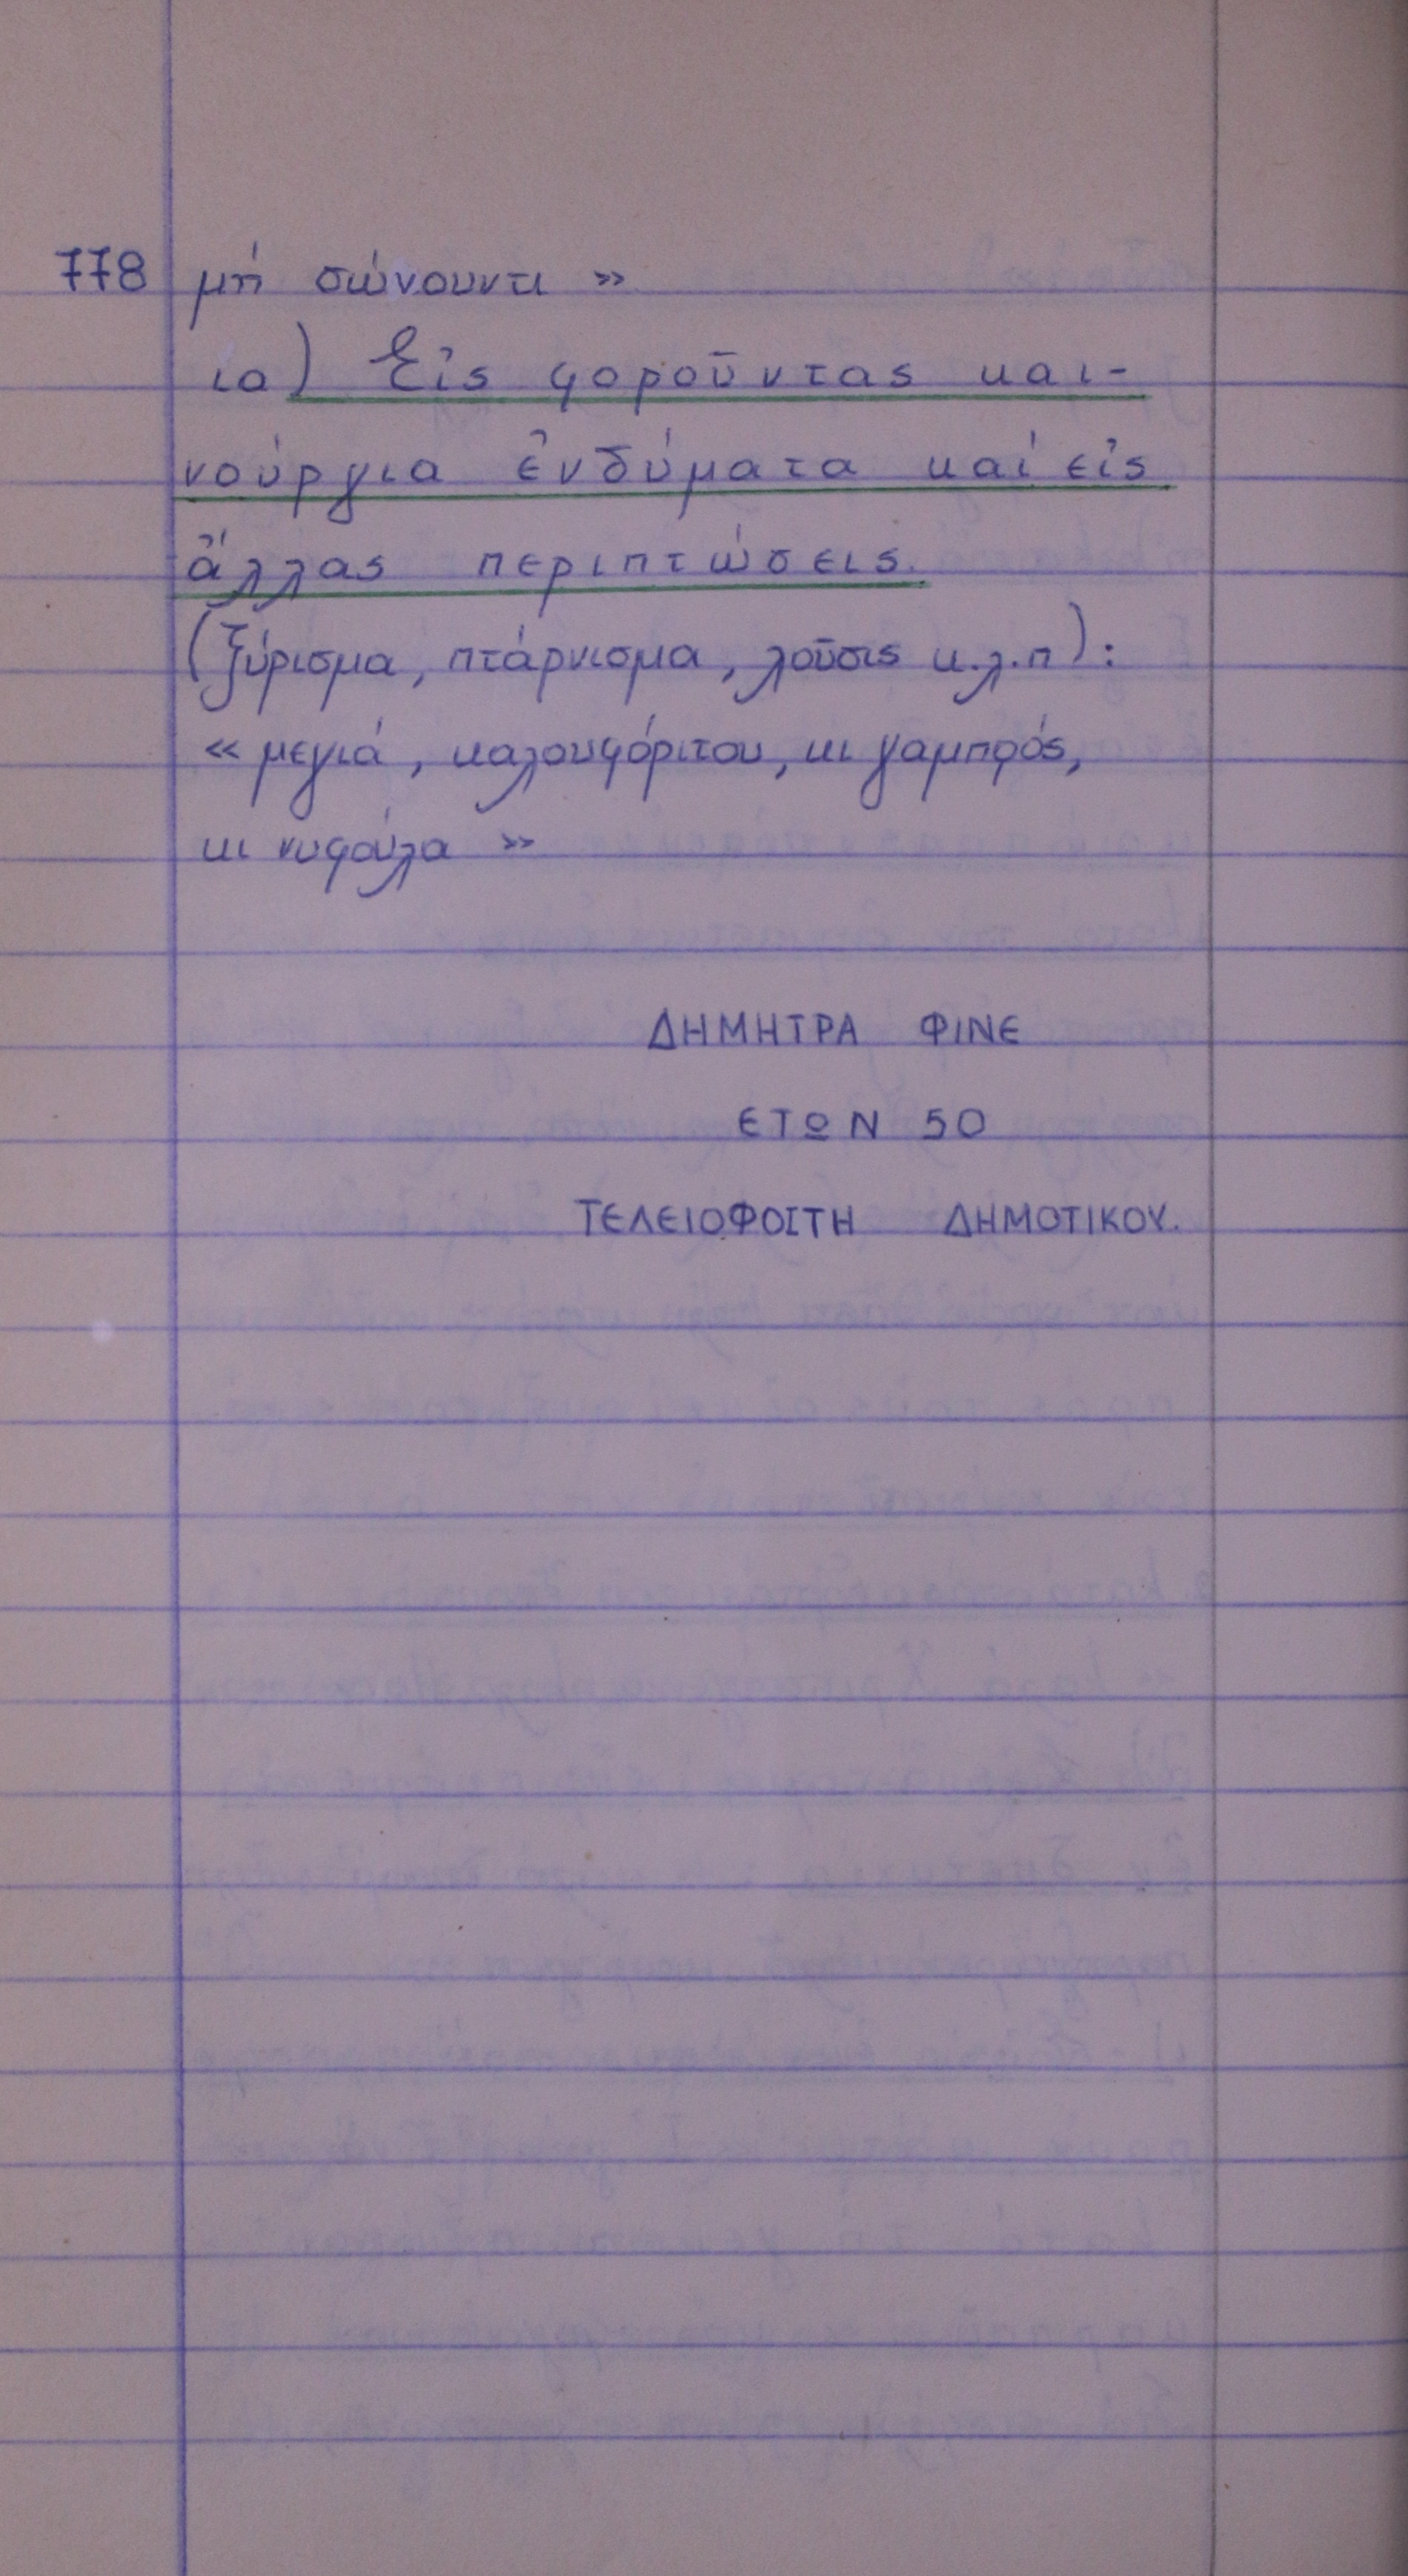 778 μή σώνουντι »
ια) Εἰς φοροῦντας και-
νούργια ἐνδύματα καί εἰς
ἄλλας περιπτώσεις.
(ξύρισμα, πτάρνισμα, λοῦσις κ.λ.π):
« μεγιά, καλουφόριτου, κι γαμπρός,
κι νυφούλα »
ΔΗΜΗΤΡΑ ΦΙΝΕ
ΕΤΩΝ 50
ΤΕΛΕΙΟΦΟΙΤΗ ΔΗΜΟΤΙΚΟΥ.